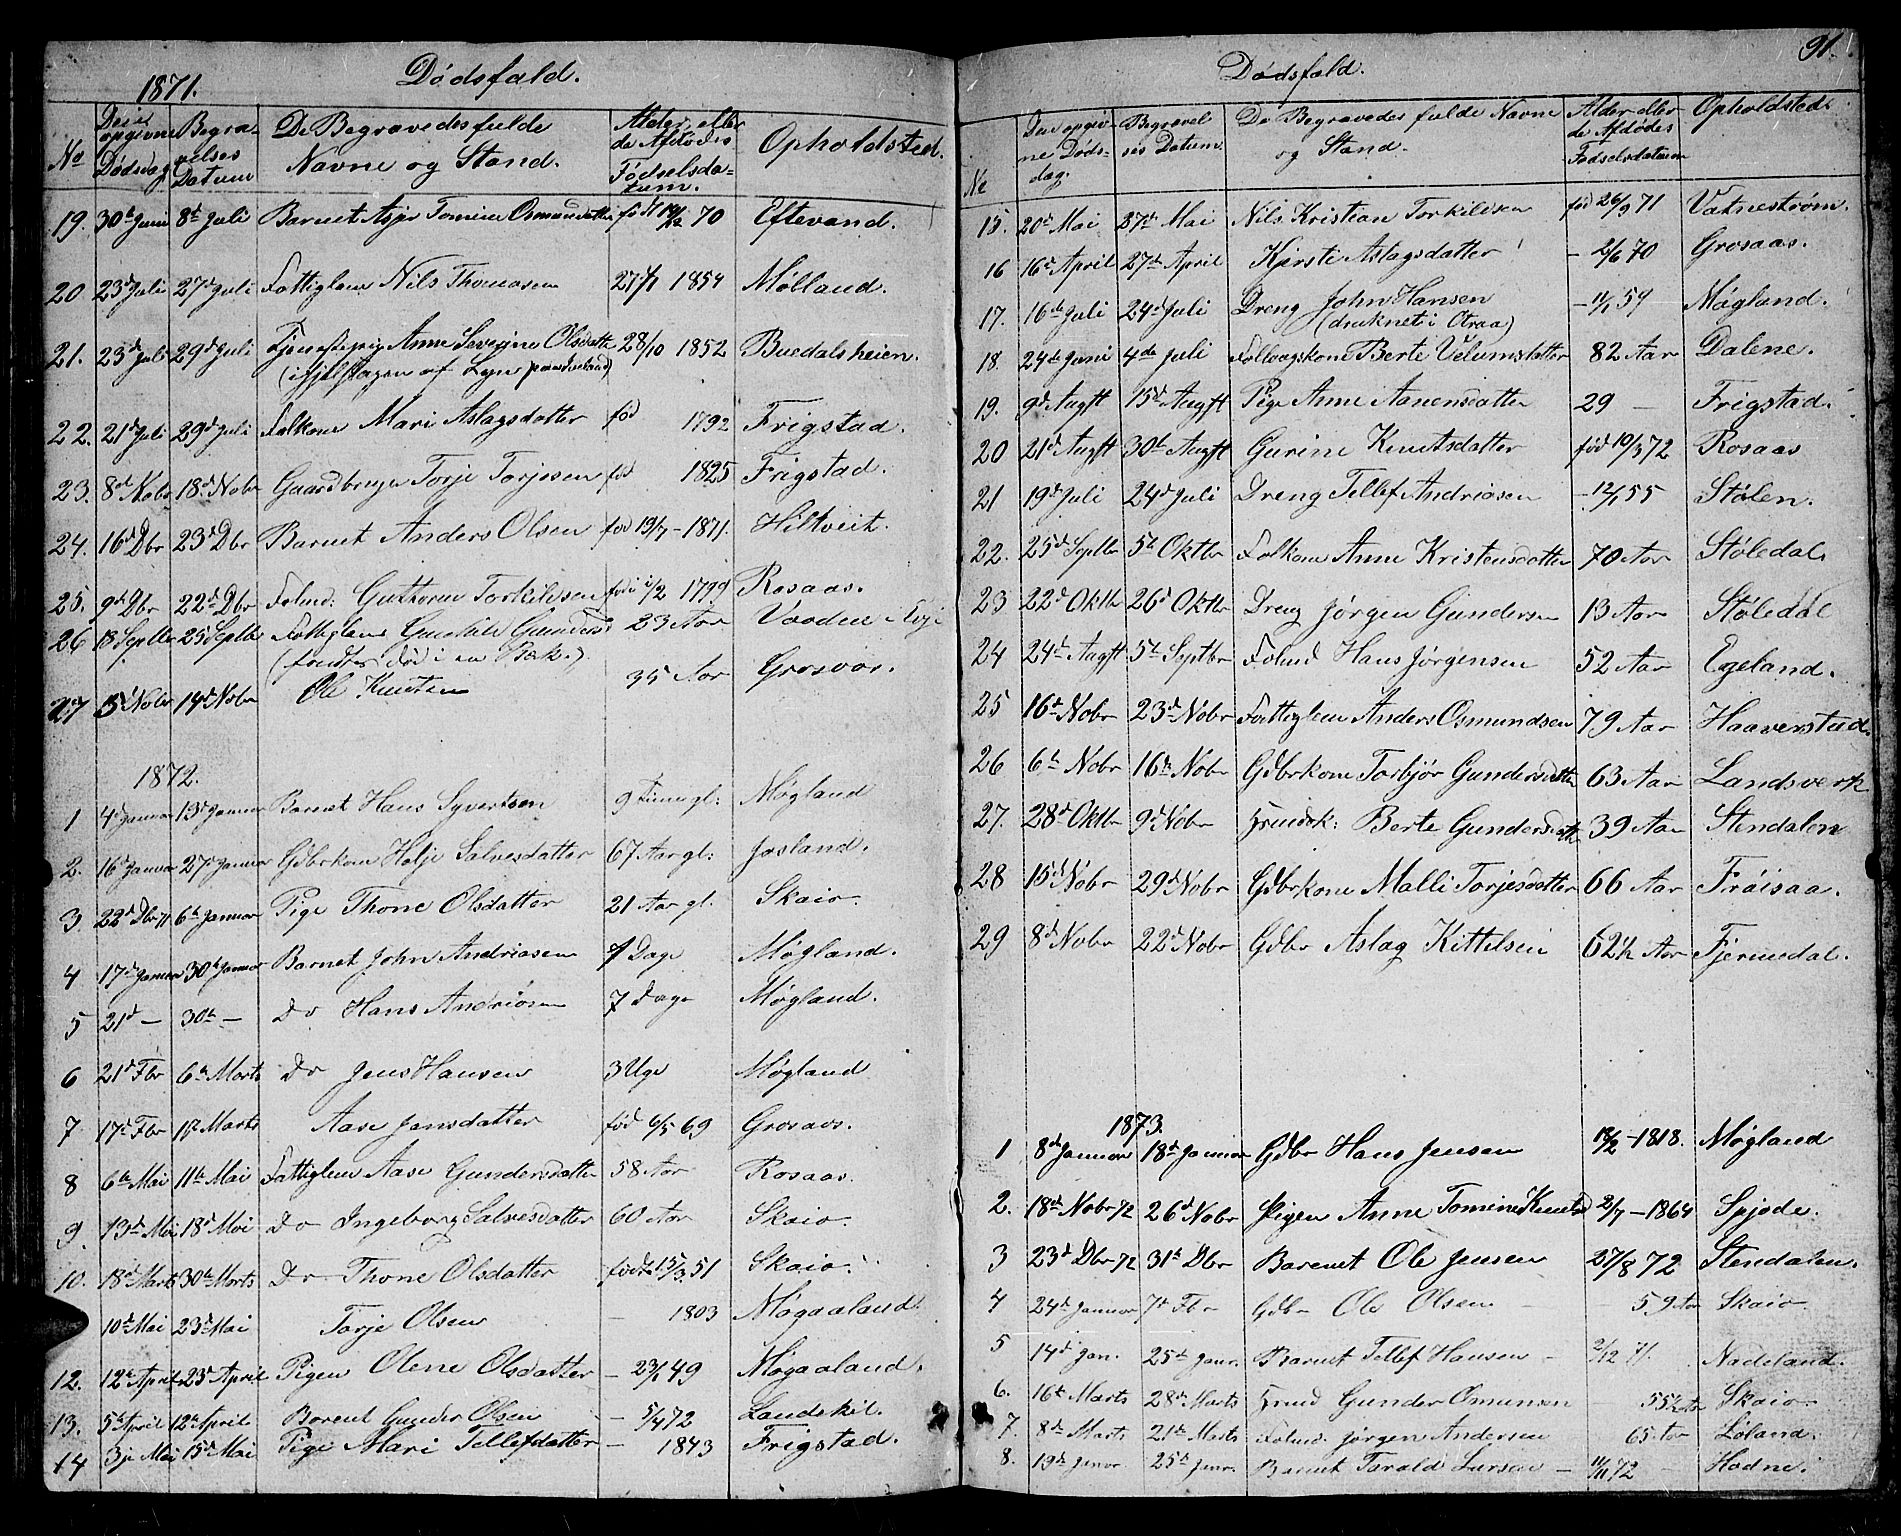 1871.
Dødsfald.
No
Den opgivne Dødsdag
Begravelses Datum
De Begravedes fulde Navne og Stand.
Alder eller de Afdødes Fødselsdatum.
Opholdsted.
19. 30te Juni 8de Juli Barnet Asjer Tomine Osmundsdatter fød 70 Eftevand.
20 23de Juli 27de Juli Fattiglem Nils Thomasen 27/1 1854 Mølland.
21. 23de Juli 29de Juli Tjenestepige Anne Severine Olsdatter 28/10 1852 Buedalsheien.
(ihjelslagen af Lyn)
22. 21de Juli 29de Juli Folkone Mari Aslagsdatter fød 1792 Frigstad.
23. 8de Nobr 18de Nobr Gaardbruger Torje Torjesen fød 1825 Frigstad.
24. 16de Dbr 23de Dbr Barnet Anders Olsen fød 19/7 - 1871. Hiltveit.
25. 9de Dbr 22de Dbr Folmd: Guttorm Torkildsen fød 1/2 1799 Rosaas.
26 13 Septbr 25 Septbr Fattiglem Gunhild Gunders 23 Aar Vaaden i
(fundtes død i en Bæk.)
27 5te Nobr 14de Nobr Ole Knutsen 35 Aar Grosaas.
1872.
1 4de Januar 13de Januar Barnet Hans Syvertsen 9 Timer gl: Møgland
2. 16de Januar 27de Januar Gdbrkone Helje Salvesdatter 67 Aar gl: Josland.
3 22de Dbr 71 6te Januar Pige Thone Olsdatter 21 Aar gl. Skaio.
4 17de Januar 30te Januar Barnet John Andriasen 7 Dage Møgland.
5 21de — 30te — Do Hans Andriasen 7 Dage Møgland.
6 21de Fbr 6te Marts Do Jens Hansen 3 Uge Møgland
7 17de Fbr Marts Aase Jensdatter fød 6/5 69 Grosaas.
8 6te Mai 11te Mai Fattiglem Aase Gundersdatter 58 Aar Rosaas.
9. 13de Mai 18de Mai Do Ingeborg Salvesdatter 60 Aar Skaio.
10. 18de Marts 30te Marts Do Thone Olsdatter født 15/3 51 Skaio.
10de Mai 23de Mai Torje Olsen — 1803 Møgaaland.
12. 12te April 23de April Pigen Olene Olsdatter — 23/1 49 Møgaaland.
13. 5te April 12te April Barnet Gunder Olsen — 5/4 72 Landskil.
14 3je Mai 15de Mai Pige Mari Tellefdatter — 1843 Frigstad.
91.
Dødsfald.
No
Den opgivne Dødsdag.
Begravelses Datum.
De Begravedes fulde Navne og Stand.
Alder eller de Afdødes Fødselsdatum
Opholdsted.
15. 20de Mai 27de Mai Nils Kristian Torkildsen fød 26/9 71 Vatnestrøm.
16 16de April 27de April Kjerste Aslagsdatter — 2/6 70 Grosaas.
17. 16de Juli 24de Juli Dreng John Hansen — 11/1 59 Møgland.
(druknet i Otraa)
18. 24de Juni 4de Juli Folloagskone Berte Velumsdatter 82 Aar Dalene.
19. 9de Augst 15de Augst Pige Anne Aanensdatter 29 — Frigstad.
20 21de Augst 30te Augst Gurine Knutsdatter fød 19/3 72 Rosaas
21 19de Juli 24de Juli Dreng Tellef Andriasen — 12/1 55 Stølen.
22. 25de Septbr 5te Oktbr Folkone Anne Kristensdatter 70 Aar Støledal.
23 22de Oktbr 26de Oktbr Dreng Jørgen Gundersen 13 Aar Støledal
24 24de Augst 5te Septbr Folmd Hans Jørgensen 52 Aar Egeland.
25 16de Nobr 23de Nobr Fattiglem Anders Osmundsen 79 Aar Haaverstad.
26 6te Nobr 16te Nobr Gdbrkone Torbjør Gundersdatter 63 Aar Landsverk
27. 28de Oktbr 9de Nobr Hrmdsk: Berte Gundersdatter 39 Aar Stendalen
28 15de Nobr 29de Nobr Gdbrkone Malli Torjesdatter 66 Aar Frøisaa.
29 8de Nobr 22de Nobr Gdbr Aslag Kittelsen 62½ Aar Fjermedal.
1873.
1 8de Januar 18de Januar Gdbr Hans Jensen 18/2 - 1818. Møgland
2. 18de Nobr 72 26de Nobr Pigen Anne Tomine Knutsd 2/7 - 1864 Spjøde.
3 23de Dbr 72 31te Dbr Barnet Ole Jensen 27/8 72 Stendalen.
4 24de Januar 7de Fbr Gdbr Ole Olsen — 59 Aar Skaio
5 14de Jan. 25de Janr. Barnet Tellef Hansen — 2/12 71. Nadeland.
6. 16de Marts 28de Marts Hrmd Gunder Omunsen 55½ Aar Skaio
7. 8de Marts 21de Marts Folmd: Jørgen Andersen 65 Aar Løland.
8. 19de Janr. 25de Janr. Barnet Tarald Larsen — 11/11 72 Hodne.